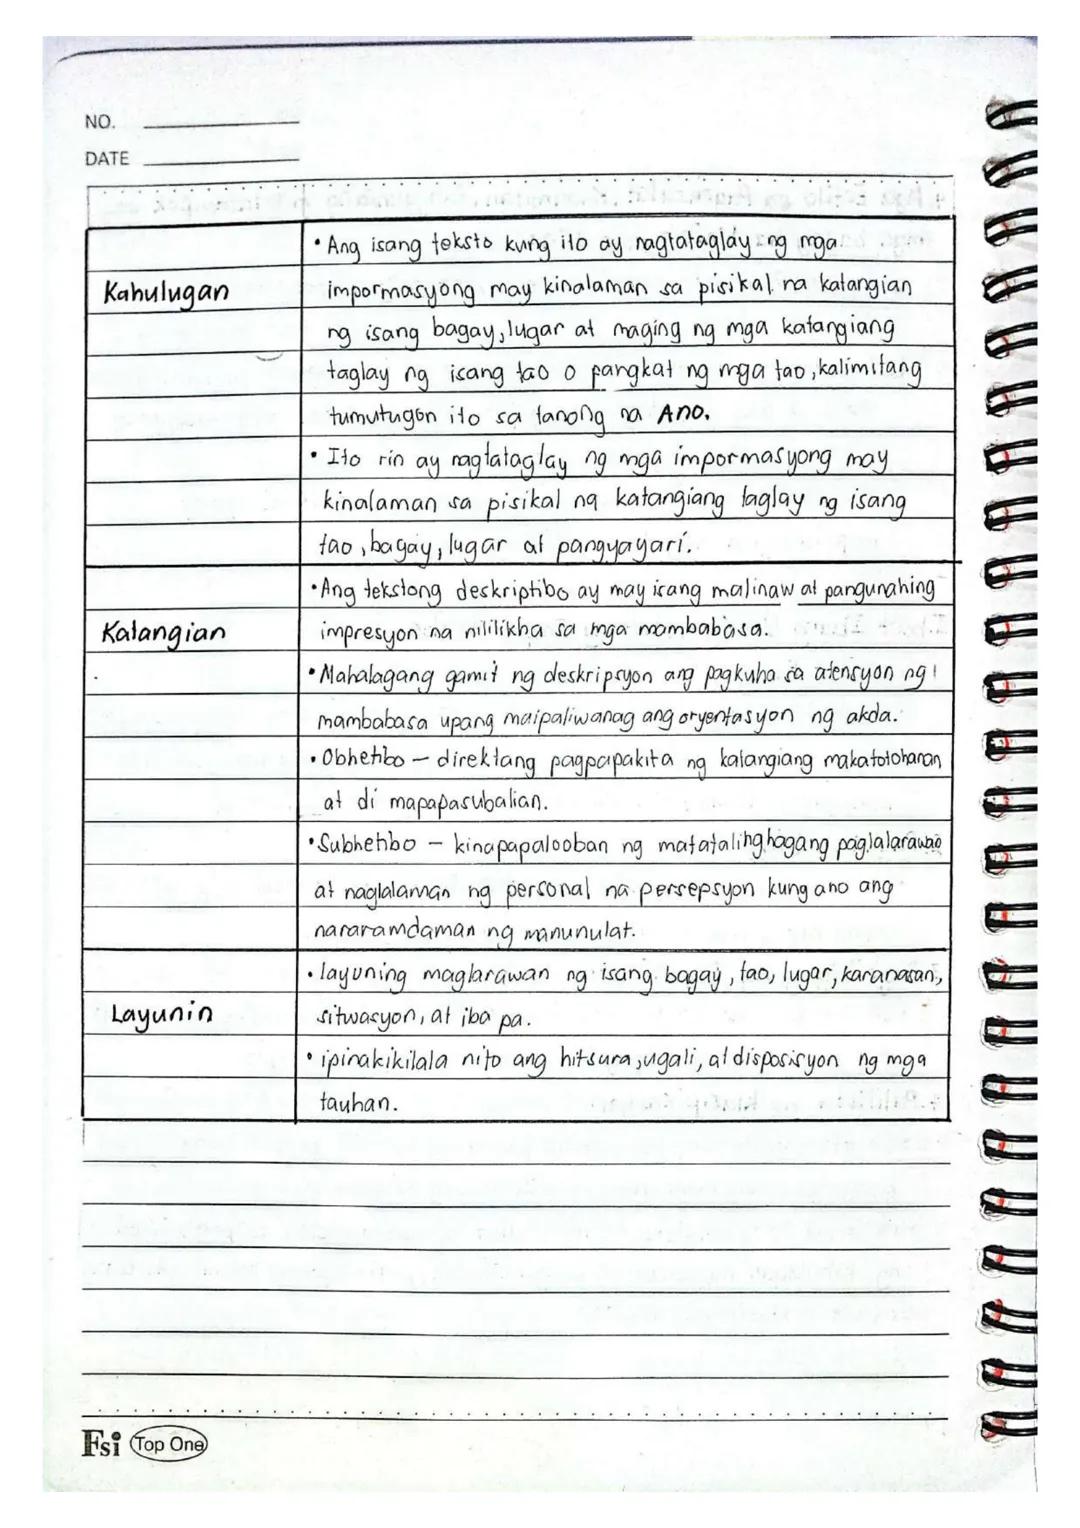 NO.
DATE
• Ang isang teksto kung ito ay nagtataglay ng mga
Kahulugan
impormasyong may kinalaman sa pisikal na katangian
ng isang bagay, lugar at maging ng mga katangiang
taglay ng isang tao o pangkat ng mga tao, kalimitang
tumutugon ito sa tanong na Ano.
• Ito rin ay nagtataglay ng mga impormasyong may
kinalaman sa pisikal na katangiang taglay ng isang
tao, bagay, lugar at pangyayari.
• Ang tekstong deskriptibo ay may isang malinaw at pangunahing
Katangian
impresyon na nililikha sa mga mambabasa.
• Mahalagang gamit ng deskripsyon ang pagkuha sa atensyon ng
mambabasa upang maipaliwanag ang oryentasyon ng akda.
• Obhetibo – direktang pagpapakita ng katangiang makatotohanan
at di mapapasubalian.
• Subhetibo – kinapapalooban ng matatalinghagang paglalarawan
at naglalaman ng personal na persepsyon kung ano ang
nararamdaman ng manunulat.
• layuning maglarawan ng isang bagay, tao, lugar, karanasan,
Layunin
sitwasyon, at iba pa.
• ipinakikilala nito ang hitsura, ugali, at disposisyon ng mga
tauhan.
Fsi Top One